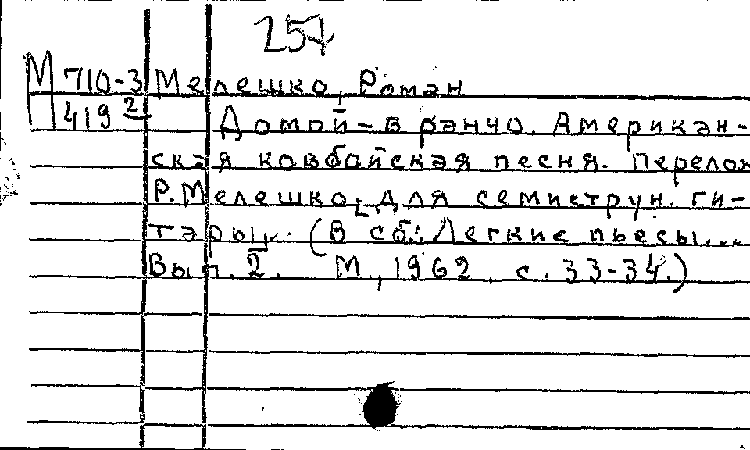 257
М 710-3 Мелешко, Роман
П 419² Домой – в ранчо. Американ-
ская ковбойская песня. Перелож
Р. Мелешко для семиструн. ги-
тары. (В сб.: Легкие пьесы...
Вып. 2. М., 1962. с. 33-34.)